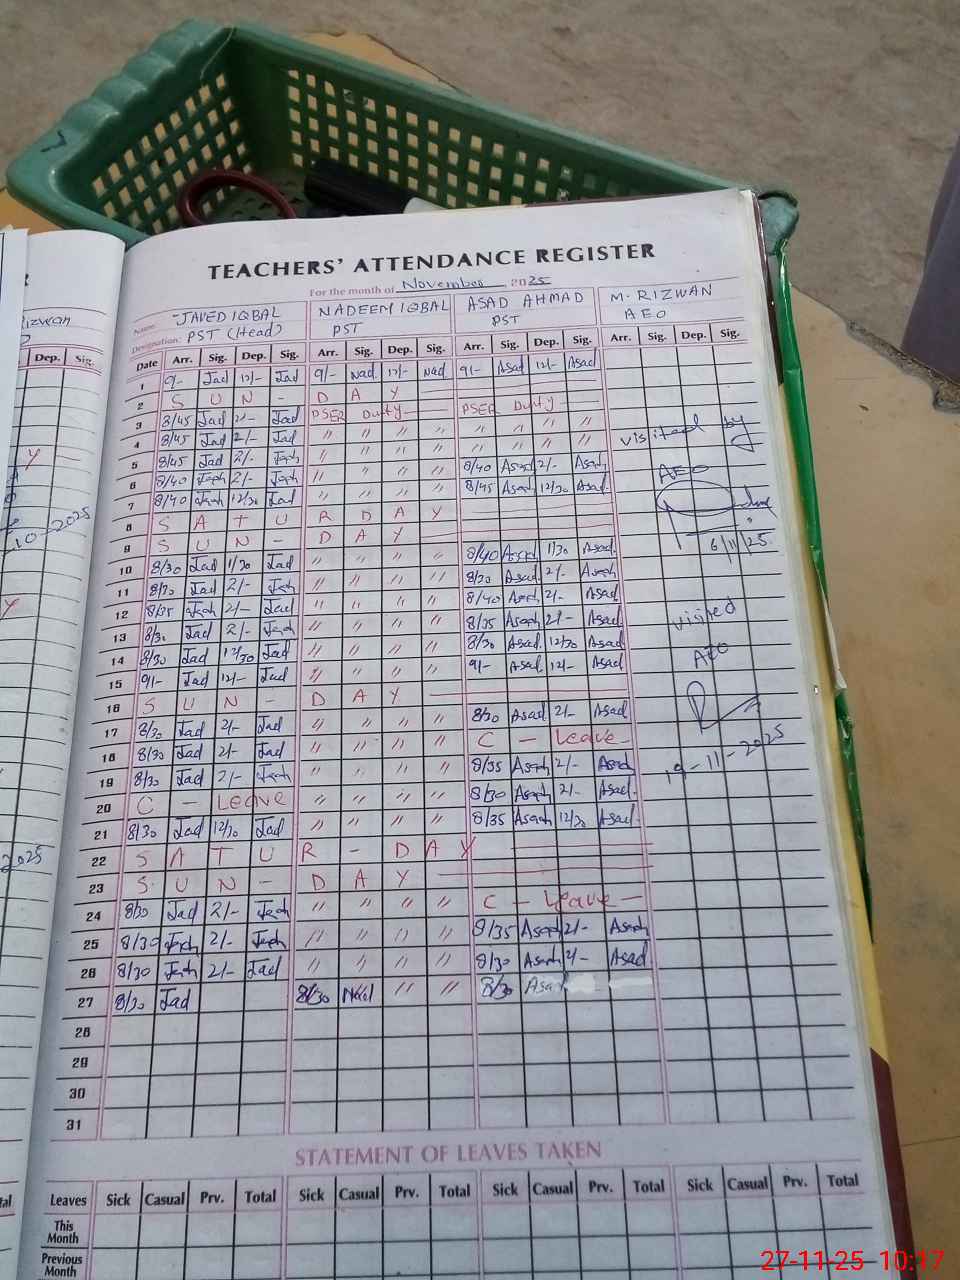 TEACHERS' ATTENDANCE REGISTER
For the month of November 2025
Rizwan
Name: JAVED IQBAL NADEEM IQBAL ASAD AHMAD M. RIZWAN
Designation: PST (Head) PST PST AEO
Dep. Sig.
Date Arr. Sig. Dep. Sig. Arr. Sig. Dep. Sig. Arr. Sig. Dep. Sig. Arr. Sig. Dep. Sig.
1 9- Jad 12/- Jad 9/- Nad 12/- Nad 9/- Asad 12/- Asad
2 S U N - D A Y
3 8/45 Jad 2/- Jad PSER Duty PSER Duty
4 8/45 Jad 2/- Jad " " " " " " " "
visited by
5 8/45 Jad 2/- Jad " " " " 8/40 Asad 2/- Asad
AEO
6 8/40 Jad 2/- Jad " " " " 8/45 Asad 12/30 Asad
7 8/40 Jad 12/30 Jad " " " "
8 S A T U R D A Y
9 S U N - D A Y
6/11/25
10 8/30 Jad 1/30 Jad " " " " 8/40 Asad 1/30 Asad
11 8/30 Jad 2/- Jad " " " " 8/30 Asad 2/- Asad
12 8/35 Jad 2/- Jad " " " " 8/40 Asad 2/- Asad
visited
13 8/30 Jad 2/- Jad " " " " 8/35 Asad 2/- Asad
14 8/30 Jad 12/30 Jad " " " " 8/30 Asad 12/30 Asad
AEO
15 9/- Jad 12/- Jad " " " " 9/- Asad 12/- Asad
16 S U N - D A Y
17 8/30 Jad 2/- Jad " " " " 8/30 Asad 2/- Asad
18 8/30 Jad 2/- Jad " " " " C - Leave -
19-11-2025
19 8/30 Jad 2/- Jad " " " " 8/35 Asad 2/- Asad
20 C - Leave " " " " 8/30 Asad 2/- Asad
21 8/30 Jad 12/30 Jad " " " " 8/35 Asad 12/30 Asad
22 S A T U R - D A Y
23 S U N - D A Y
24 8/30 Jad 2/- Jad " " " " C - Leave -
25 8/30 Jad 2/- Jad " " " " 8/35 Asad 2/- Asad
26 8/30 Jad 2/- Jad " " " " 8/30 Asad 2/- Asad
27 8/30 Jad 8/30 Nad " " 8/30 Asad
28
29
30
31
STATEMENT OF LEAVES TAKEN
Leaves Sick Casual Prv. Total Sick Casual Prv. Total Sick Casual Prv. Total Sick Casual Prv. Total
This Month
Previous Month
27-11-25 10:17